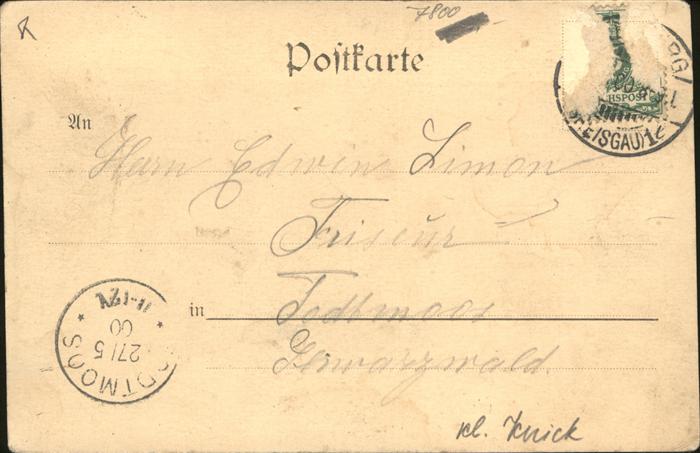 7800
Postkarte
An
Herrn Edwin Simon
Friseur
in Todtmoos
Schwarzwald.
kl. Knick
HSPOST
BREISGAU) 1
TODTMOOS
27/5
00
11-12V